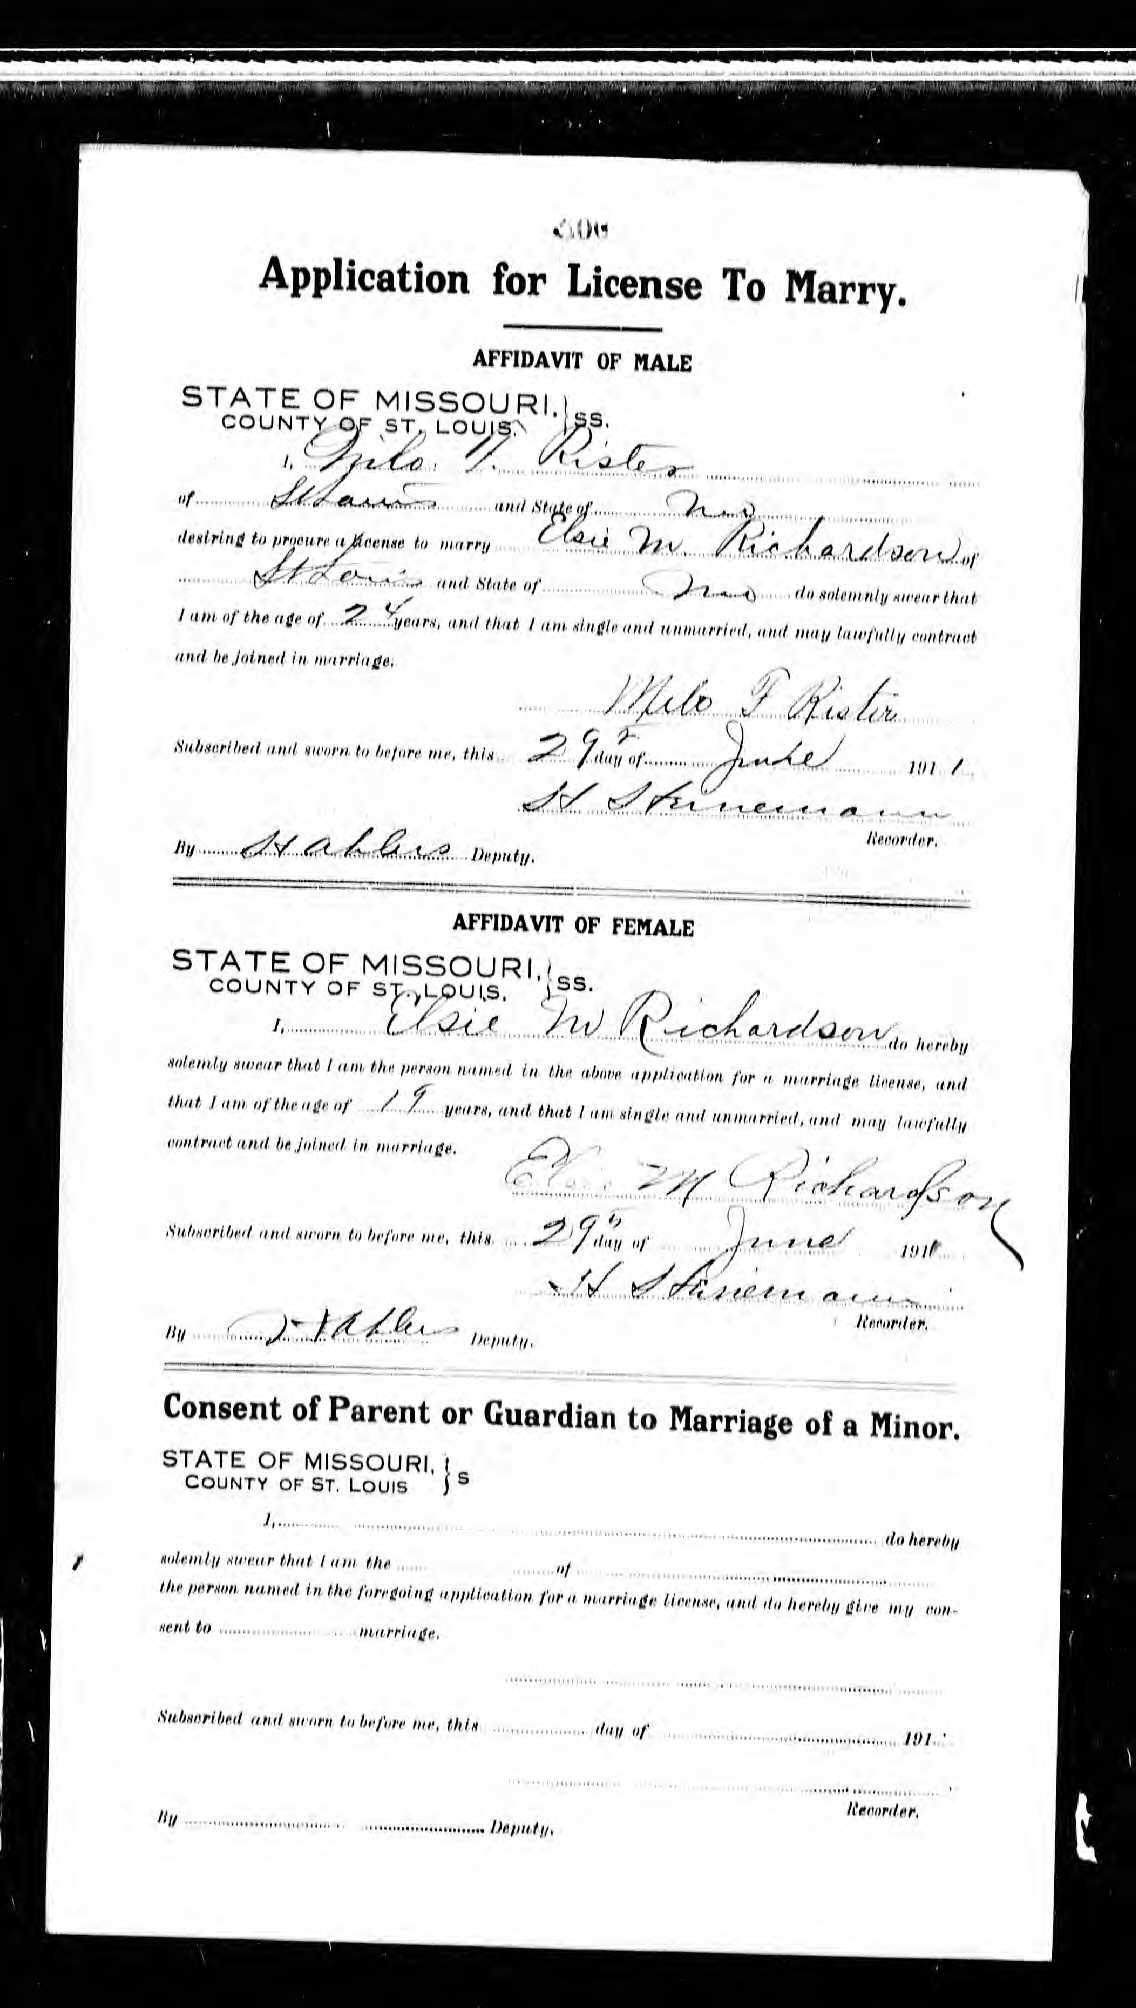 Application for License To Marry.
AFFIDAVIT OF MALE
STATE OF MISSOURI, } SS.
COUNTY OF ST. LOUIS.
I, Milo F. Rister
of St Louis and State of Mo
desiring to procure a license to marry Elsie M. Richardson of
St Louis and State of Mo do solemnly swear that
I am of the age of 24 years, and that I am single and unmarried, and may lawfully contract
and be joined in marriage.
Milo F Rister
Subscribed and sworn to before me, this 29th day of June 1911
H Steinemann
Recorder.
By H Ahlers Deputy.
AFFIDAVIT OF FEMALE
STATE OF MISSOURI, } SS.
COUNTY OF ST. LOUIS,
I, Elsie M Richardson do hereby
solemly swear that I am the person named in the above application for a marriage license, and
that I am of the age of 19 years, and that I am single and unmarried, and may lawfully
contract and be joined in marriage.
Elsie M Richardson
Subscribed and sworn to before me, this 29th day of June 1911
H Steinemann
Recorder.
By H Ahlers Deputy.
Consent of Parent or Guardian to Marriage of a Minor.
STATE OF MISSOURI, } S
COUNTY OF ST. LOUIS
I, do hereby
solemly swear that I am the of
the person named in the foregoing application for a marriage license, and do hereby give my con-
sent to marriage.
Subscribed and sworn to before me, this day of 191
Recorder.
By Deputy.